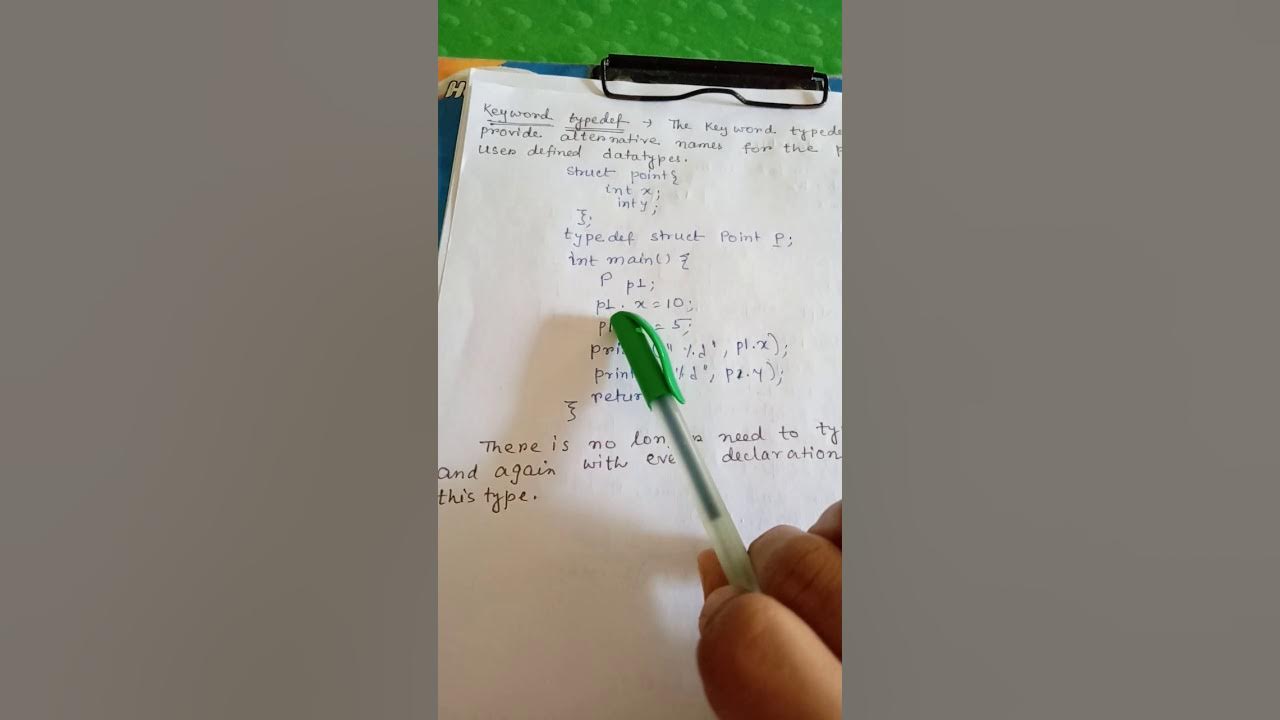 H
Keyword typedef → The Keyword typede
provide alternative names for the p
User defined datatypes.
struct point{
int x;
int y;
};
typedef struct Point P;
int main() {
P p1;
p1. x = 10;
= 5;
"%d", p1.x);
%d", p1.y);
}
There is no need to ty
and again with declaration
this type.